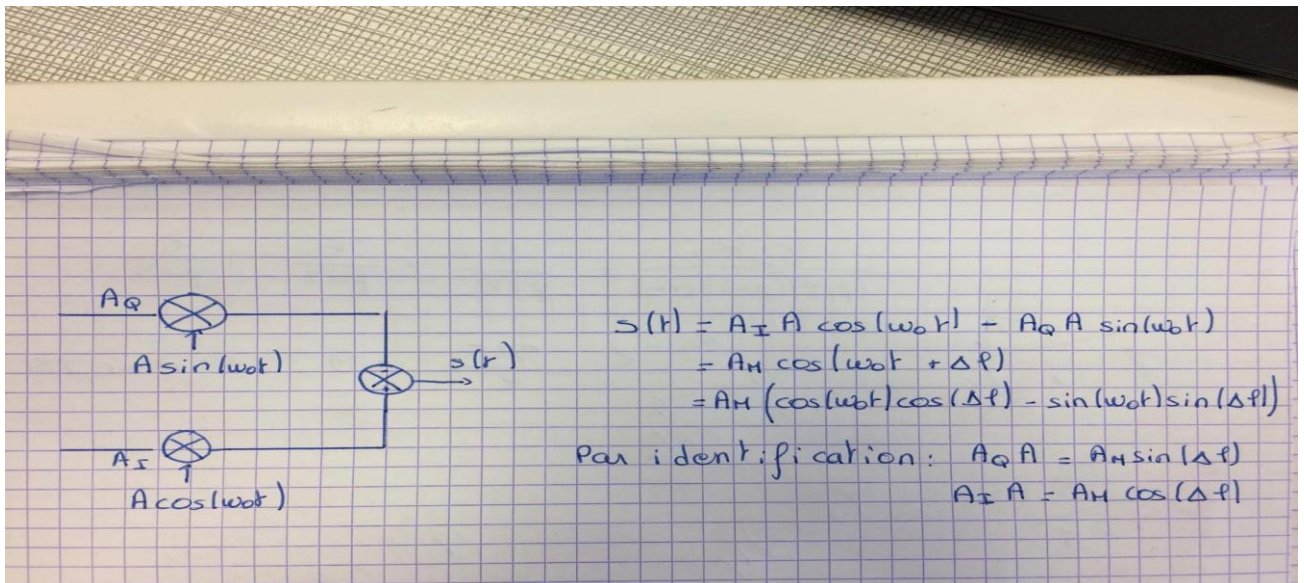 A_Q
A sin(ω₀t)
s(t)
A_I
A cos(ω₀t)
s(t) = A_I A cos(ω₀t) - A_Q A sin(ω₀t)
= A_M cos(ω₀t + Δφ)
= A_M (cos(ω₀t)cos(Δφ) - sin(ω₀t)sin(Δφ))
Par identification: A_Q A = A_M sin(Δφ)
A_I A = A_M cos(Δφ)